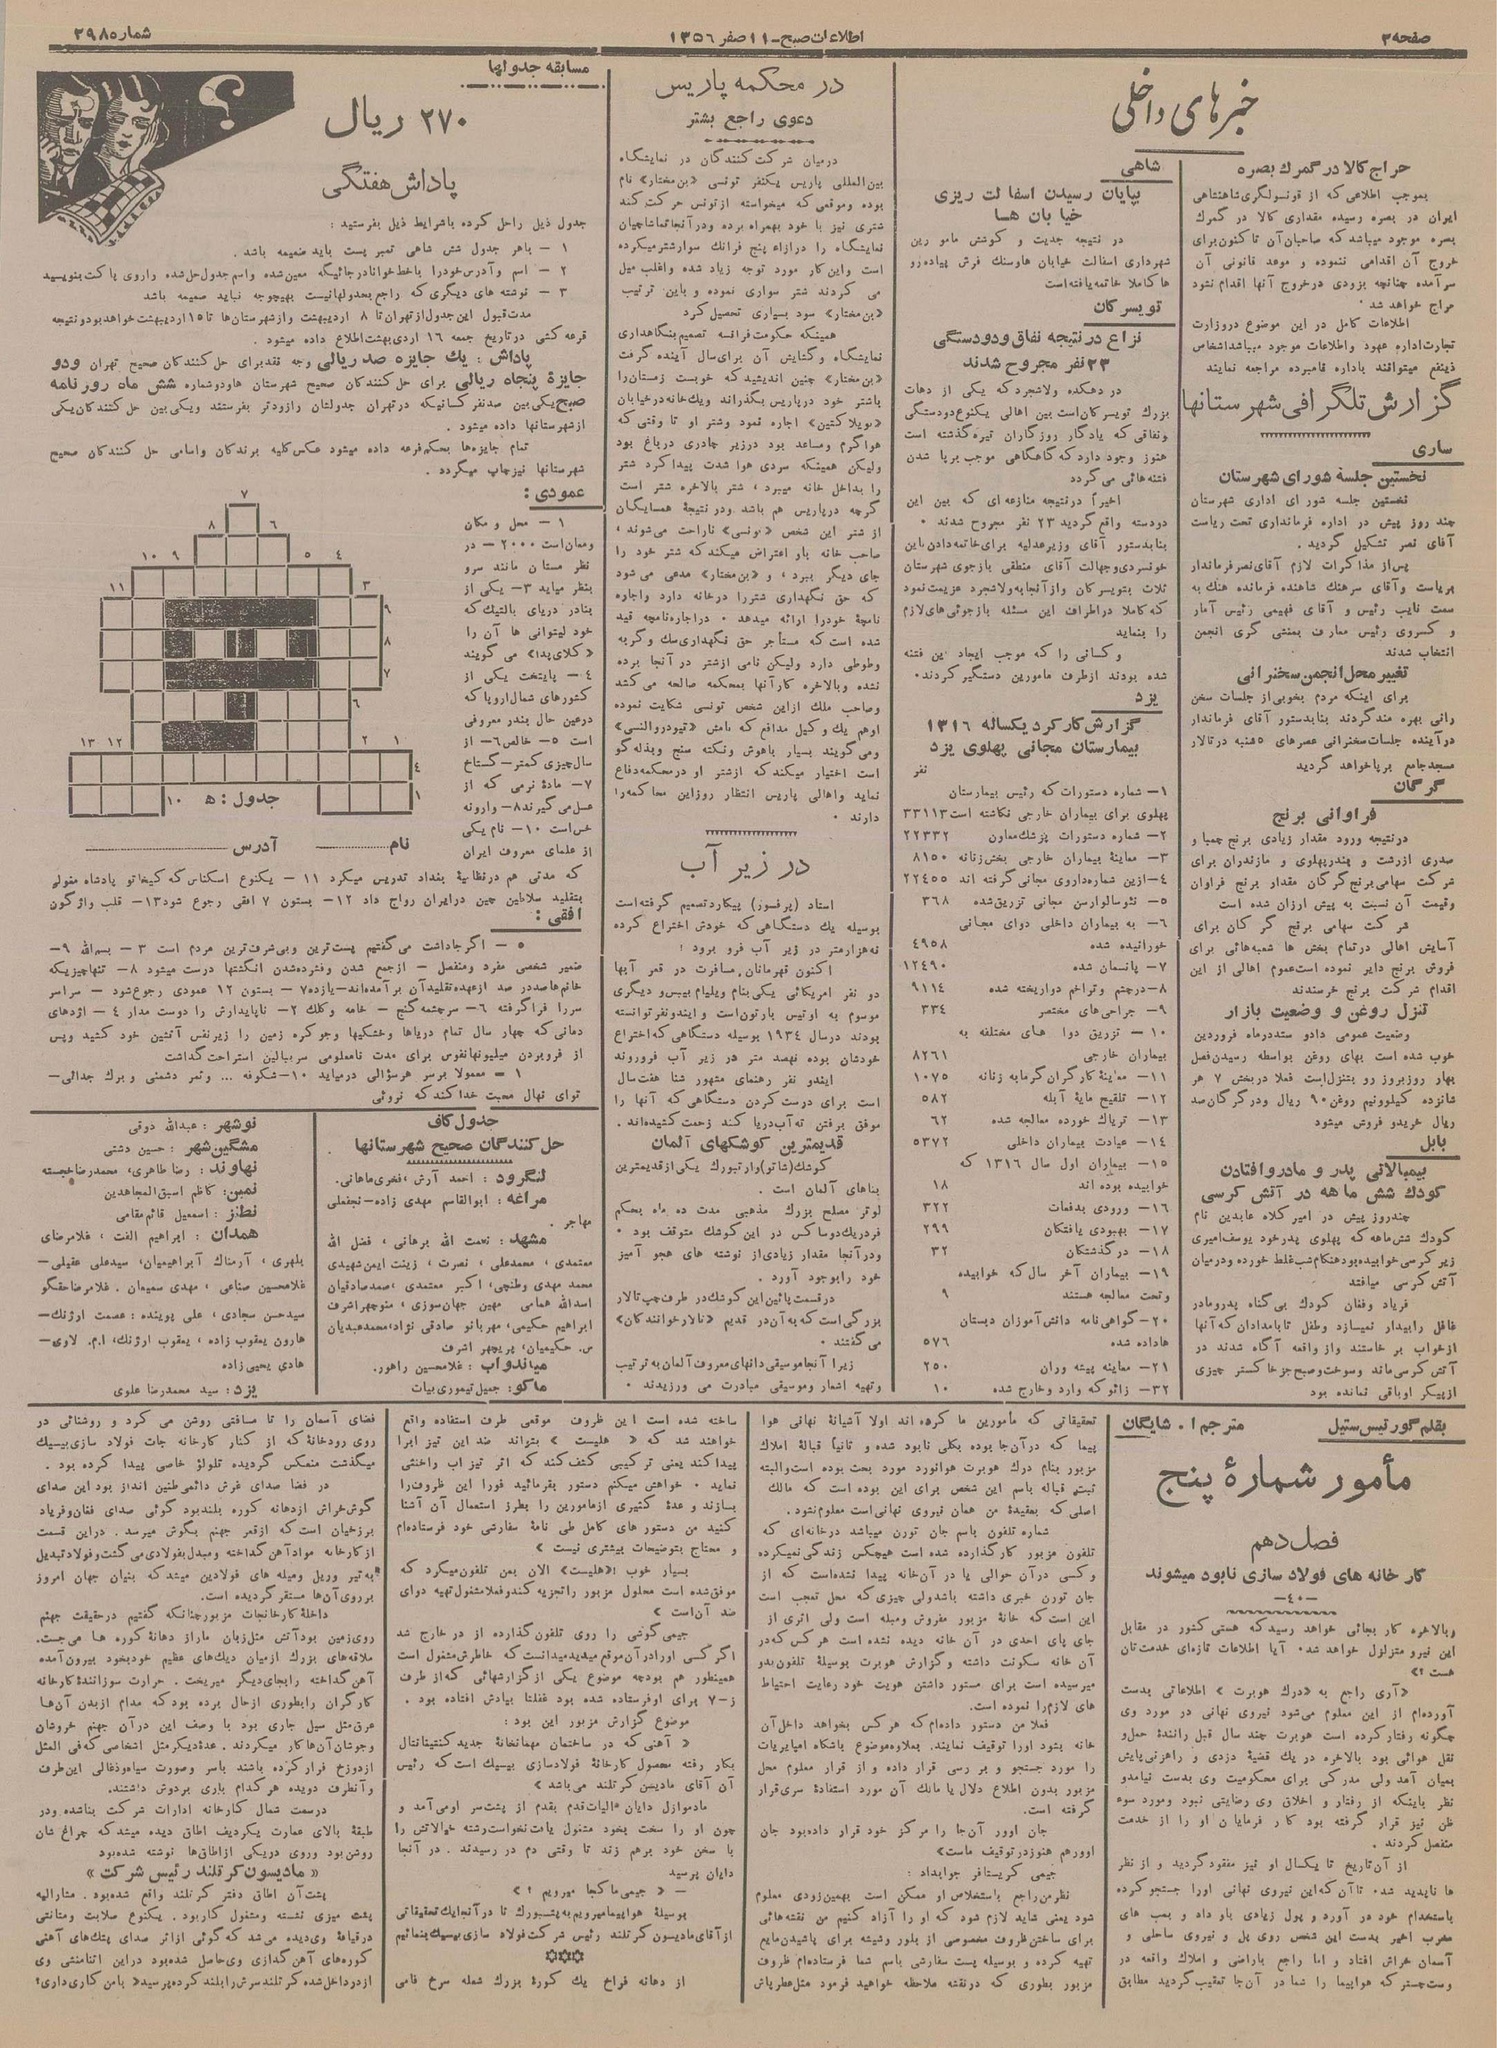 صفحه ۲
اطلاعات صبح - ۱۱ صفر ۱۳۵۶
شماره ۲۹۸۵
خبرهای داخلی
حراج کالا در گمرك بصره
بموجب اطلاعی که از قونسولگری شاهنشاهی
ایران در بصره رسیده مقداری کالا در گمرك
بصره موجود میباشد که صاحبان آن تا کنون برای
خروج آن اقدامی ننموده و موعد قانونی آن
سر آمده چنانچه بزودی در خروج آنها اقدام نشود
حراج خواهد شد
اطلاعات کامل در این موضوع در وزارت
تجارت اداره عهود و اطلاعات موجود میباشد اشخاص
ذینفع میتوانند باداره نامبرده مراجعه نمایند
گزارش تلگرافی شهرستانها
ساری
نخستین جلسهٔ شورای شهرستان
نخستین جلسه شورای اداری شهرستان
چند روز پیش در اداره فرمانداری تحت ریاست
آقای نصر تشکیل گردید .
پس از مذاکرات لازم آقای نصر فرماندار
بریاست و آقای سرهنك شاهنده فرمانده هنك به
سمت نایب رئیس و آقای فهیمی رئیس آمار
و کسروی رئیس معارف بمنشی گری انجمن
انتخاب شدند
تغییر محل انجمن سخنرانی
برای اینکه مردم بخوبی از جلسات سخن
رانی بهره مند گردند بنا بدستور آقای فرماندار
در آینده جلسات سخنرانی عصرهای ۵ شنبه در تالار
مسجد جامع برپا خواهد گردید
گرگان
فراوانی برنج
در نتیجه ورود مقدار زیادی برنج چمپا و
صدری از رشت و بندر پهلوی و مازندران برای
شرکت سهامی برنج گرگان مقدار برنج فراوان
و قیمت آن نسبت به پیش ارزان شده است
شرکت سهامی برنج گرگان برای
آسایش اهالی در تمام بخش ها شعبه هائی برای
فروش برنج دایر نموده است عموم اهالی از این
اقدام شرکت برنج خرسندند
تنزل روغن و وضعیت بازار
وضعیت عمومی داد و ستد در ماه فروردین
خوب شده است بهای روغن بواسطه رسیدن فصل
بهار روز بروز رو بتنزل است فعلا در بخش ۷ هر
شانزده کیلو و نیم روغن ۹۰ ریال و در گرگان صد
ریال خرید و فروش میشود
بابل
بیمبالاتی پدر و مادر و افتادن
کودك شش ماهه در آتش کرسی
چند روز پیش در امیر کلاه عابدین نام
کودك شش ماهه که پهلوی پدر خود یوسف امیری
زیر کرسی خوابیده بود هنگام شب غلط خورده و درمیان
آتش کرسی میافتد
فریاد و فغان کودك بی گناه پدر و مادر
غافل را بیدار نمیسازد و طفل تا بامدادان که آنها
از خواب بر خاستند و از واقعه آگاه شدند در
آتش کرسی ماند و سوخت و صبح جز خاکستر چیزی
از پیکر او باقی نمانده بود
شاهی
بپایان رسیدن اسفالت ریزی
خیابان ها
در نتیجه جدیت و کوشش مامورین
شهرداری اسفالت خیابان ها و سنك فرش پیاده رو
ها کاملا خاتمه یافته است
تویسرکان
نزاع در نتیجه نفاق و دودستگی
۲۳ نفر مجروح شدند
در دهکده ولاشجرد که یکی از دهات
بزرك تویسرکان است بین اهالی یکنوع دودستگی
و نفاقی که یادگار روزگاران تیره گذشته است
هنوز وجود دارد که گاهگاهی موجب برپا شدن
فتنه هائی می گردد
اخیراً در نتیجه منازعه ای که بین این
دودسته واقع گردید ۲۳ نفر مجروح شدند
بنا بدستور آقای وزیر عدلیه برای خاتمه دادن باین
خونسردی و جهالت آقای منطقی بازجوی شهرستان
ثلاث بتویسرکان و از آنجا به ولاشجرد عزیمت نمود
که کاملا در اطراف این مسئله بازجوئی های لازم
را بنماید
و کسانی را که موجب ایجاد این فتنه
شده بودند از طرف مامورین دستگیر کردند
یزد
گزارش کار کرد یکساله ۱۳۱۶
بیمارستان مجانی پهلوی یزد
نفر
۱- شماره دستورات که رئیس بیمارستان
پهلوی برای بیماران خارجی نگاشته است ۳۳۱۱۳
۲- شماره دستورات پزشك معاون ۲۲۳۳۲
۳- معاینهٔ بیماران خارجی بخش زنانه ۸۱۵۰
۴- ازین شماره داروی مجانی گرفته اند ۲۲۴۵۵
۵- نئوسالوارسن مجانی تزریق شده ۳۶۸
۶- به بیماران داخلی دوای مجانی
خورانیده شده ۴۹۵۸
۷- پانسمان شده ۱۲۴۹۰
۸- در چشم و تراخم دوا ریخته شده ۹۱۱۴
۹- جراحی های مختصر ۳۳۴
۱۰- تزریق دوا های مختلفه به
بیماران خارجی ۸۲۶۱
۱۱- معاینهٔ کارگران گرمابه زنانه ۱۰۷۵
۱۲- تلقیح مایهٔ آبله ۵۸۲
۱۳- تریاك خورده معالجه شده ۶۲
۱۴- عیادت بیماران داخلی ۵۳۷۲
۱۵- بیماران اول سال ۱۳۱۶ که
خوابیده بوده اند ۱۸
۱۶- ورودی بدفعات ۳۲۲
۱۷- بهبودی یافتگان ۲۹۹
۱۸- درگذشتگان ۳۲
۱۹- بیماران آخر سال که خوابیده
و تحت معالجه هستند ۹
۲۰- گواهی نامه دانش آموزان دبستان
ها داده شده ۵۷۶
۲۱- معاینه پیشه وران ۲۵۰
۳۲- زائو که وارد و خارج شده ۱۰
در محکمه پاریس
دعوی راجع بشتر
درمیان شرکت کنندگان در نمایشگاه
بین المللی پاریس یکنفر تونسی «بن مختار» نام
بوده و موقعی که میخواسته از تونس حرکت کند
شتری نیز با خود بهمراه برده و در آنجا تماشاچیان
نمایشگاه را در ازاء پنج فرانك سوار شتر میکرده
است و این کار مورد توجه زیاد شده و اغلب میل
می کردند شتر سواری نموده و باین ترتیب
«بن مختار» سود بسیاری تحصیل کرد
همینکه حکومت فرانسه تصمیم بنگاهداری
نمایشگاه و گشایش آن برای سال آینده گرفت
«بن مختار» چنین اندیشید که خوبست زمستان را
باشتر خود در پاریس بگذراند و یك خانه در خیابان
اجاره نمود و شتر او تا وقتی که
هوا گرم و مساعد بود در زیر چادری در باغ بود
ولیکن همینکه سردی هوا شدت پیدا کرد شتر
را بداخل خانه میبرد ، شتر بالاخره شتر است
گرچه در پاریس هم باشد و در نتیجهٔ همسایگان
از شتر این شخص «تونسی» ناراحت می شوند ،
صاحب خانه باو اعتراض میکند که شتر خود را
جای دیگر ببرد ، و «بن مختار» مدعی می شود
که حق نگهداری شتر را در خانه دارد و اجاره
نامچهٔ خود را ارائه میدهد ، در اجاره نامچه قید
شده است که مستأجر حق نگهداری سك و گربه
و طوطی دارد ولیکن نامی از شتر در آنجا برده
نشده و بالاخره کار آنها بمحکمه صالحه می کشد
و صاحب ملك از این شخص تونسی شکایت نموده
او هم یك وکیل مدافع که نامش «تیودور والنسی»
و می گویند بسیار باهوش و نکته سنج و بذله گو
است اختیار میکند که از شتر او در محکمه دفاع
نماید و اهالی پاریس انتظار روز این محاکمه را
دارند
در زیر آب
استاد (پرفسور) پیکارد تصمیم گرفته است
بوسیله یك دستگاهی که خودش اختراع کرده
نه هزار متر در زیر آب فرو برود
اکنون قهرمانان مسافرت در قعر آبها
دو نفر امریکائی یکی بنام ویلیام بیبس و دیگری
موسوم به اوتیس بارتون است و ایندو نفر توانسته
بودند در سال ۱۹۳۴ بوسیله دستگاهی که اختراع
خودشان بوده نهصد متر در زیر آب فرو روند
ایندو نفر رهنمای مشهور شنا هفت سال
است برای درست کردن دستگاهی که آنها را
موفق برفتن ته آب دریا کند زحمت کشیده اند .
قدیمترین کوشکهای آلمان
کوشك (شاتو) وارتبورك یکی از قدیمترین
بناهای آلمان است .
لوتر مصلح بزرك مذهبی مدت ده ماه بحکم
فردریك دوساکس در این کوشك متوقف بود
و در آنجا مقدار زیادی از نوشته های هجو آمیز
خود را بوجود آورد .
در قسمت پائین این کوشك در طرف چپ تالار
بزرگی است که به آن در قدیم «تالار خوانندگان»
می گفتند
زیرا آنجا موسیقی دانهای معروف آلمان به ترتیب
و تهیه اشعار و موسیقی مبادرت می ورزیدند
مسابقه جدولها
؟
۲۷۰ ریال
پاداش هفتگی
جدول ذیل را حل کرده باشرایط ذیل بفرستید :
۱ - باهر جدول شش شاهی تمبر پست باید ضمیمه باشد .
۲ - اسم و آدرس خود را باخط خوانا در جائیکه معین شده و اسم جدول حل شده را روی پاکت بنویسید
۳ - نوشته های دیگری که راجع بجدولها نیست بهیچوجه نباید ضمیمه باشد
مدت قبول این جدول از تهران تا ۸ اردیبهشت و از شهرستان ها تا ۱۵ اردیبهشت خواهد بود و نتیجه
قرعه کشی در تاریخ جمعه ۱۶ اردی بهشت اطلاع داده میشود .
پاداش : یك جایزه صد ریالی وجه نقد برای حل کنندگان صحیح تهران و دو
جایزهٔ پنجاه ریالی برای حل کنندگان صحیح شهرستان ها و دو شماره شش ماه روزنامه
صبح یکی بین صد نفر کسانیکه در تهران جدولشان را زودتر بفرستند و یکی بین حل کنندگان یکی
از شهرستانها داده میشود .
تمام جایزه ها بحکم قرعه داده میشود عکس کلیه برندگان و اسامی حل کنندگان صحیح
شهرستانها نیز چاپ میگردد .
عمودی :
۱ - محل و مکان
و معان است ۲۰۰۰ - در
نظر مستان مانند سرو
بنظر میاید ۳ - یکی از
بنادر دریای بالتيك که
خود لیتوانی ها آن را
«کلای پدا» می گویند
۴ - پایتخت یکی از
کشورهای شمال اروپا که
درعین حال بندر معروفی
است ۵ - خالص ۶ - از
سال چیزی کمتر - گستاخ
۷ - مادهٔ نرمی که از
عسل می گیرند ۸ - وارونه
خس است ۱۰ - نام یکی
از علمای معروف ایران
که مدتی هم در نظامیهٔ بغداد تدریس میکرد ۱۱ - یکنوع اسکناس که کیخاتو پادشاه مغولی
بتقلید سلاطین چین در ایران رواج داد ۱۲ - بستون ۷ افقی رجوع شود ۱۳ - قلب واژگون
۷
۸ ۶
۱۰ ۹ ۵ ۴
۱۱ ۳
۹
۸
۷
۶
۱۳ ۱۲ ۲ ۱
۴
۱۰ جدول : ه ۱
نام آدرس
افقی :
۵ - اگر جا داشت می گفتیم پست ترین و بی شرف ترین مردم است ۳ - بسم الله ۹ -
ضمیر شخصی مفرد و منفصل - از جمع شدن و فشرده شدن انگشتها درست میشود ۸ - تنها چیزیکه
خانم ها صد در صد از عهده تقلید آن بر آمده اند - یازده ۷ - بستون ۱۲ عمودی رجوع شود - سراسر
سر را فرا گرفته ۶ - سر چشمه گنج - خامه و کلك ۲ - ناپایدارش را دوست مدار ۴ - اژدهای
دمانی که چهار سال تمام دریاها و خشکیها و جو کره زمین را زیر نفس آتشین خود کشید و پس
از فروبردن میلیونها نفوس برای مدت نامعلومی سر ببالین استراحت گذاشت
۱ - معمولا بر سر هر سؤالی در میاید ۱۰ - شکوفه ... و ثمر دشمنی و برك جدائی -
توای نهال محبت خدا کند که نروئی
جدول کاف
حل کنندگان صحیح شهرستانها
لنگرود : احمد آرش ، فخری ماهانی .
مراغه : ابوالقاسم مهدی زاده - نجفعلی
مهاجر .
مشهد : نعمت الله برهانی ، فضل الله
معتمدی ، محمدعلی ، نصرت ، زینت ایمن شهیدی
محمد مهدی وطنچی ، اکبر معتمدی ، صمد صادقیان
اسدالله همامی مهین جهان سوزی ، منوچهر اشرف
ابراهیم حکیمی ، مهربانو صادقی نژاد ، محمد عبدیان
س. حکیمیان ، پریچهر اشرف
میاندواب : غلامحسین راهور .
ماکو : جمیل تیموری بیات
نوشهر : عبدالله دوقی
مشگین شهر : حسین دشتی
نهاوند : رضا طاهری ، محمد رضا خجسته
نمین : کاظم اسبق المجاهدین
نطنز : اسمعیل قائم مقامی
همدان : ابراهیم الفت ، غلامرضای
بلهری ، آرمناك آبراهیمیان ، سیدعلی عقیلی -
غلامحسین صناعی ، مهدی سمیعان . غلامرضا حقگو
سید حسن سجادی ، علی پوینده : عصمت ارژنك -
هارون یعقوب زاده ، یعقوب ارژنك ، ا.م. لاوی -
هادی یحیی زاده
یزد : سید محمد رضا علوی
بقلم گورتیس ستیل
مترجم ا . شایگان
مأمور شمارهٔ پنج
فصل دهم
کارخانه های فولاد سازی نابود میشوند
- ۴۰ -
و بالاخره کار بجائی خواهد رسید که هستی کشور در مقابل
این نیرو متزلزل خواهد شد . آیا اطلاعات تازه ای خدمت تان
هست ؟»
«آری راجع به «درك هوبرت» اطلاعاتی بدست
آورده ام از این معلوم می شود نیروی نهانی در مورد وی
چگونه رفتار کرده است هوبرت چند سال قبل رانندهٔ حمل و
نقل هوائی بود بالاخره در یك قضیهٔ دزدی و راهزنی پایش
بمیان آمد ولی مدرکی برای محکومیت وی بدست نیامد و
نظر باینکه از رفتار و اخلاق وی رضایتی نبود و مورد سوء
ظن نیز قرار گرفته بود کار فرمایان او را از خدمت
منفصل کردند .
از آن تاریخ تا یکسال او نیز مفقود گردید و از نظر
ها ناپدید شد . تا آن که این نیروی نهانی او را جستجو کرده
باستخدام خود در آورد و پول زیادی باو داد و بمب های
مخرب اخیر بدست این شخص روی پل و نیروی ساحلی و
آسمان خراش افتاد و اما راجع باراضی و املاك واقعه در
وست چستر که هواپیما را شما در آن جا تعقیب کردید مطابق
تحقیقاتی که مأمورین ما کرده اند اولا آشیانهٔ نهانی هوا
پیما که در آن جا بوده بکلی نابود شده و ثانیاً قبالهٔ املاك
مزبور بنام درك هوبرت هوانورد مورد بحث بوده است والبته
ثبت قباله باسم این شخص برای این بوده است که مالك
اصلی که بعقیدهٔ من همان نیروی نهانی است معلوم نشود .
شماره تلفون باسم جان تورن میباشد در خانه ای که
تلفون مزبور کار گذارده شده است هیچکس زندگی نمیکرده
و کسی در آن حوالی یا در آن خانه پیدا نشده است که از
جان تورن خبری داشته باشد ولی چیزی که محل تعجب است
این است که خانهٔ مزبور مفروش و مبله است ولی اثری از
جای پای احدی در آن خانه دیده نشده است هر کس که در
آن خانه سکونت داشته و گزارش هوبرت بوسیلهٔ تلفون بدو
میرسیده است برای مستور داشتن هویت خود رعایت احتیاط
های لازم را نموده است .
فعلا من دستور داده ام که هر کس بخواهد داخل آن
خانه بشود او را توقیف نمایند . بعلاوه موضوع باشگاه امپایر یات
را مورد جستجو و بررسی قرار داده و از قرار معلوم محل
مزبور بدون اطلاع دلال یا مالك آن مورد استفادهٔ سری قرار
گرفته است .
جان اوور آن جا را مرکز خود قرار داده بود جان
اوور هم هنوز در توقیف ماست»
جیمی کریستافر جوابداد :
نظر من راجع باستخلاص او ممکن است بهمین زودی معلوم
شود یعنی شاید لازم شود که او را آزاد کنیم من نقشه هائی
برای ساختن ظروف مخصوصی از بلور رشیته برای پاشیدن مایع
تهیه کرده و بوسیله پست سفارشی باسم شما فرستاده ام ظروف
مزبور بطوری که در نقشه ملاحظه خواهید فرمود مثل عطر پاش
ساخته شده است این ظروف موقعی طرف استفاده واقع
خواهند شد که « هلیست » بتواند ضد این تیز ابرا
پیدا کند یعنی ترکیبی کشف کند که اثر تیزاب را خنثی
نماید . خواهش میکنم دستور بفرمائید فورا این ظروف را
بسازند و عدهٔ کثیری از مامورین را بطرز استعمال آن آشنا
کنید من دستور های کامل طی نامهٔ سفارشی خود فرستاده ام
و محتاج بتوضیحات بیشتری نیست »
بسیار خوب !«هلیست» الان بمن تلفون میکرد که
موفق شده است محلول مزبور را تجزیه کند و فعلا مشغول تهیه دوای
ضد آن است »
جیمی گوشی را روی تلفون گذارده از در خارج شد
اگر کسی او را در آن موقع میدید میدانست که خاطرش مشغول است
همینطور هم بود چه موضوع یکی از گزارشهائی که از طرف
ز - ۷ برای او فرستاده شده بود غفلتا بیادش افتاده بود .
موضوع گزارش مزبور این بود :
« آهنی که در ساختمان مهمانخانهٔ جدید کنتینانتال
بکار رفته محصول کارخانهٔ فولادسازی بیسیك است که رئیس
آن آقای مادیسن کرتلند می باشد »
مادموازل دایان الیات قدم بقدم از پشت سر او می آمد و
چون او را سخت بخود مشغول یافت نخواست رشته خیالاتش را
با سخن خود برهم زند تا وقتی دم در رسیدند . در آنجا
دایان پرسید
- « جیمی ما کجا میرویم ؟ »
بوسیلهٔ هواپیما میرویم به پتسبورك تا در آنجا يك تحقیقاتی
از آقای مادیسون کرتلند رئیس شرکت فولاد سازی بیسيك بنمائیم
✡✡✡
از دهانه فراخ يك کورهٔ بزرك شعله سرخ فامی
فضای آسمان را تا مسافتی روشن می کرد و روشنائی در
روی رودخانهٔ که از کنار کارخانه جات فولاد سازی بیسيك
میگذشت منعکس گردیده تلولؤ خاصی پیدا کرده بود .
در فضا صدای غرش دائمی طنین انداز بود این صدای
گوش خراش از دهانه کوره بلند بود گوئی صدای فغان و فریاد
برزخیان است که از قعر جهنم بگوش میرسد . در این قسمت
از کارخانه مواد آهن گداخته و مبدل بفولادی می گشت و فولاد تبدیل
به تیر و ریل و میله های فولادین میشد که بنیان جهان امروز
بر روی آن ها مستقر گردیده است .
داخلهٔ کارخانجات مزبور چنانکه گفتیم در حقیقت جهنم
روی زمین بود آتش مثل زبان مار از دهانهٔ کوره ها می جست .
ملاقه های بزرك از میان دیك های عظیم خودبخود بیرون آمده
آهن گداخته را بجای دیگر میریخت . حرارت سوزانندهٔ کارخانه
کارگران را بطوری از حال برده بود که مدام از بدن آن ها
عرق مثل سیل جاری بود با وصف این در آن جهنم خروشان
و جوشان آن ها کار میکردند . عدهٔ دیگر مثل اشخاصی که فی المثل
از دوزخ فرار کرده باشند باسر و صورت سیاه و ذغالی این طرف
و آنطرف دویده هر کدام باری بردوش داشتند .
در سمت شمال کارخانه ادارات شرکت بنا شده و در
طبقهٔ بالای عمارت یکردیف اطاق دیده میشد که چراغ شان
روشن بود و روی در یکی از اطاق ها نوشته شده بود
« مادیسون کرتلند رئیس شرکت »
پشت آن اطاق دفتر کرتلند واقع شده بود . مشارالیه
پشت میزی نشسته و مشغول کار بود . یکنوع صلابت و متانتی
در قیافهٔ وی دیده می شد که گوئی از اثر صدای پتك های آهنی
کوره های آهن گدازی وی حاصل شده بود در این اثنا منشی وی
از در داخل شده کرتلند سرش را بلند کرده پرسید« با من کاری داری؟